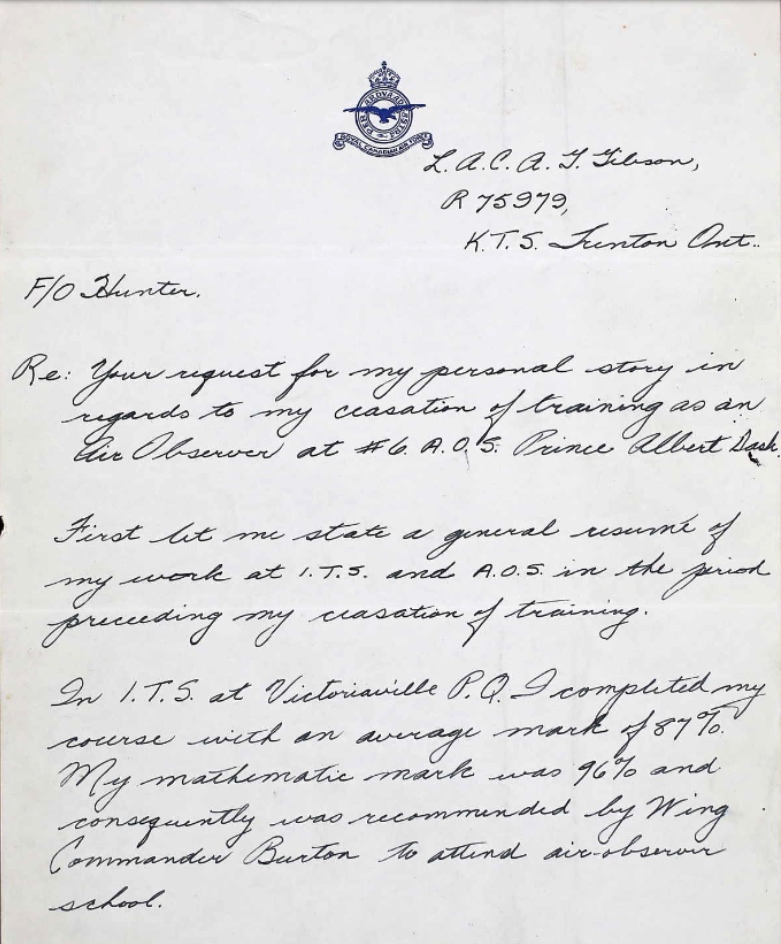 PER ARDUA AD ASTRA
ROYAL CANADIAN AIR FORCE
L.A.C. A. T. Gibson,
R 75979,
K.T.S. Trenton Ont..
F/O Hunter.
Re: Your request for my personal story in
regards to my ceasation of training as an
Air Observer at #6. A.O.S. Prince Albert Sask.
First let me state a general resumé of
my work at I.T.S. and A.O.S. in the period
preceeding my ceasation of training.
In I.T.S. at Victoriaville P.Q. I completed my
course with an average mark of 87%.
My mathematic mark was 96% and
consequently was recommended by Wing
Commander Burton to attend air-observer
school.